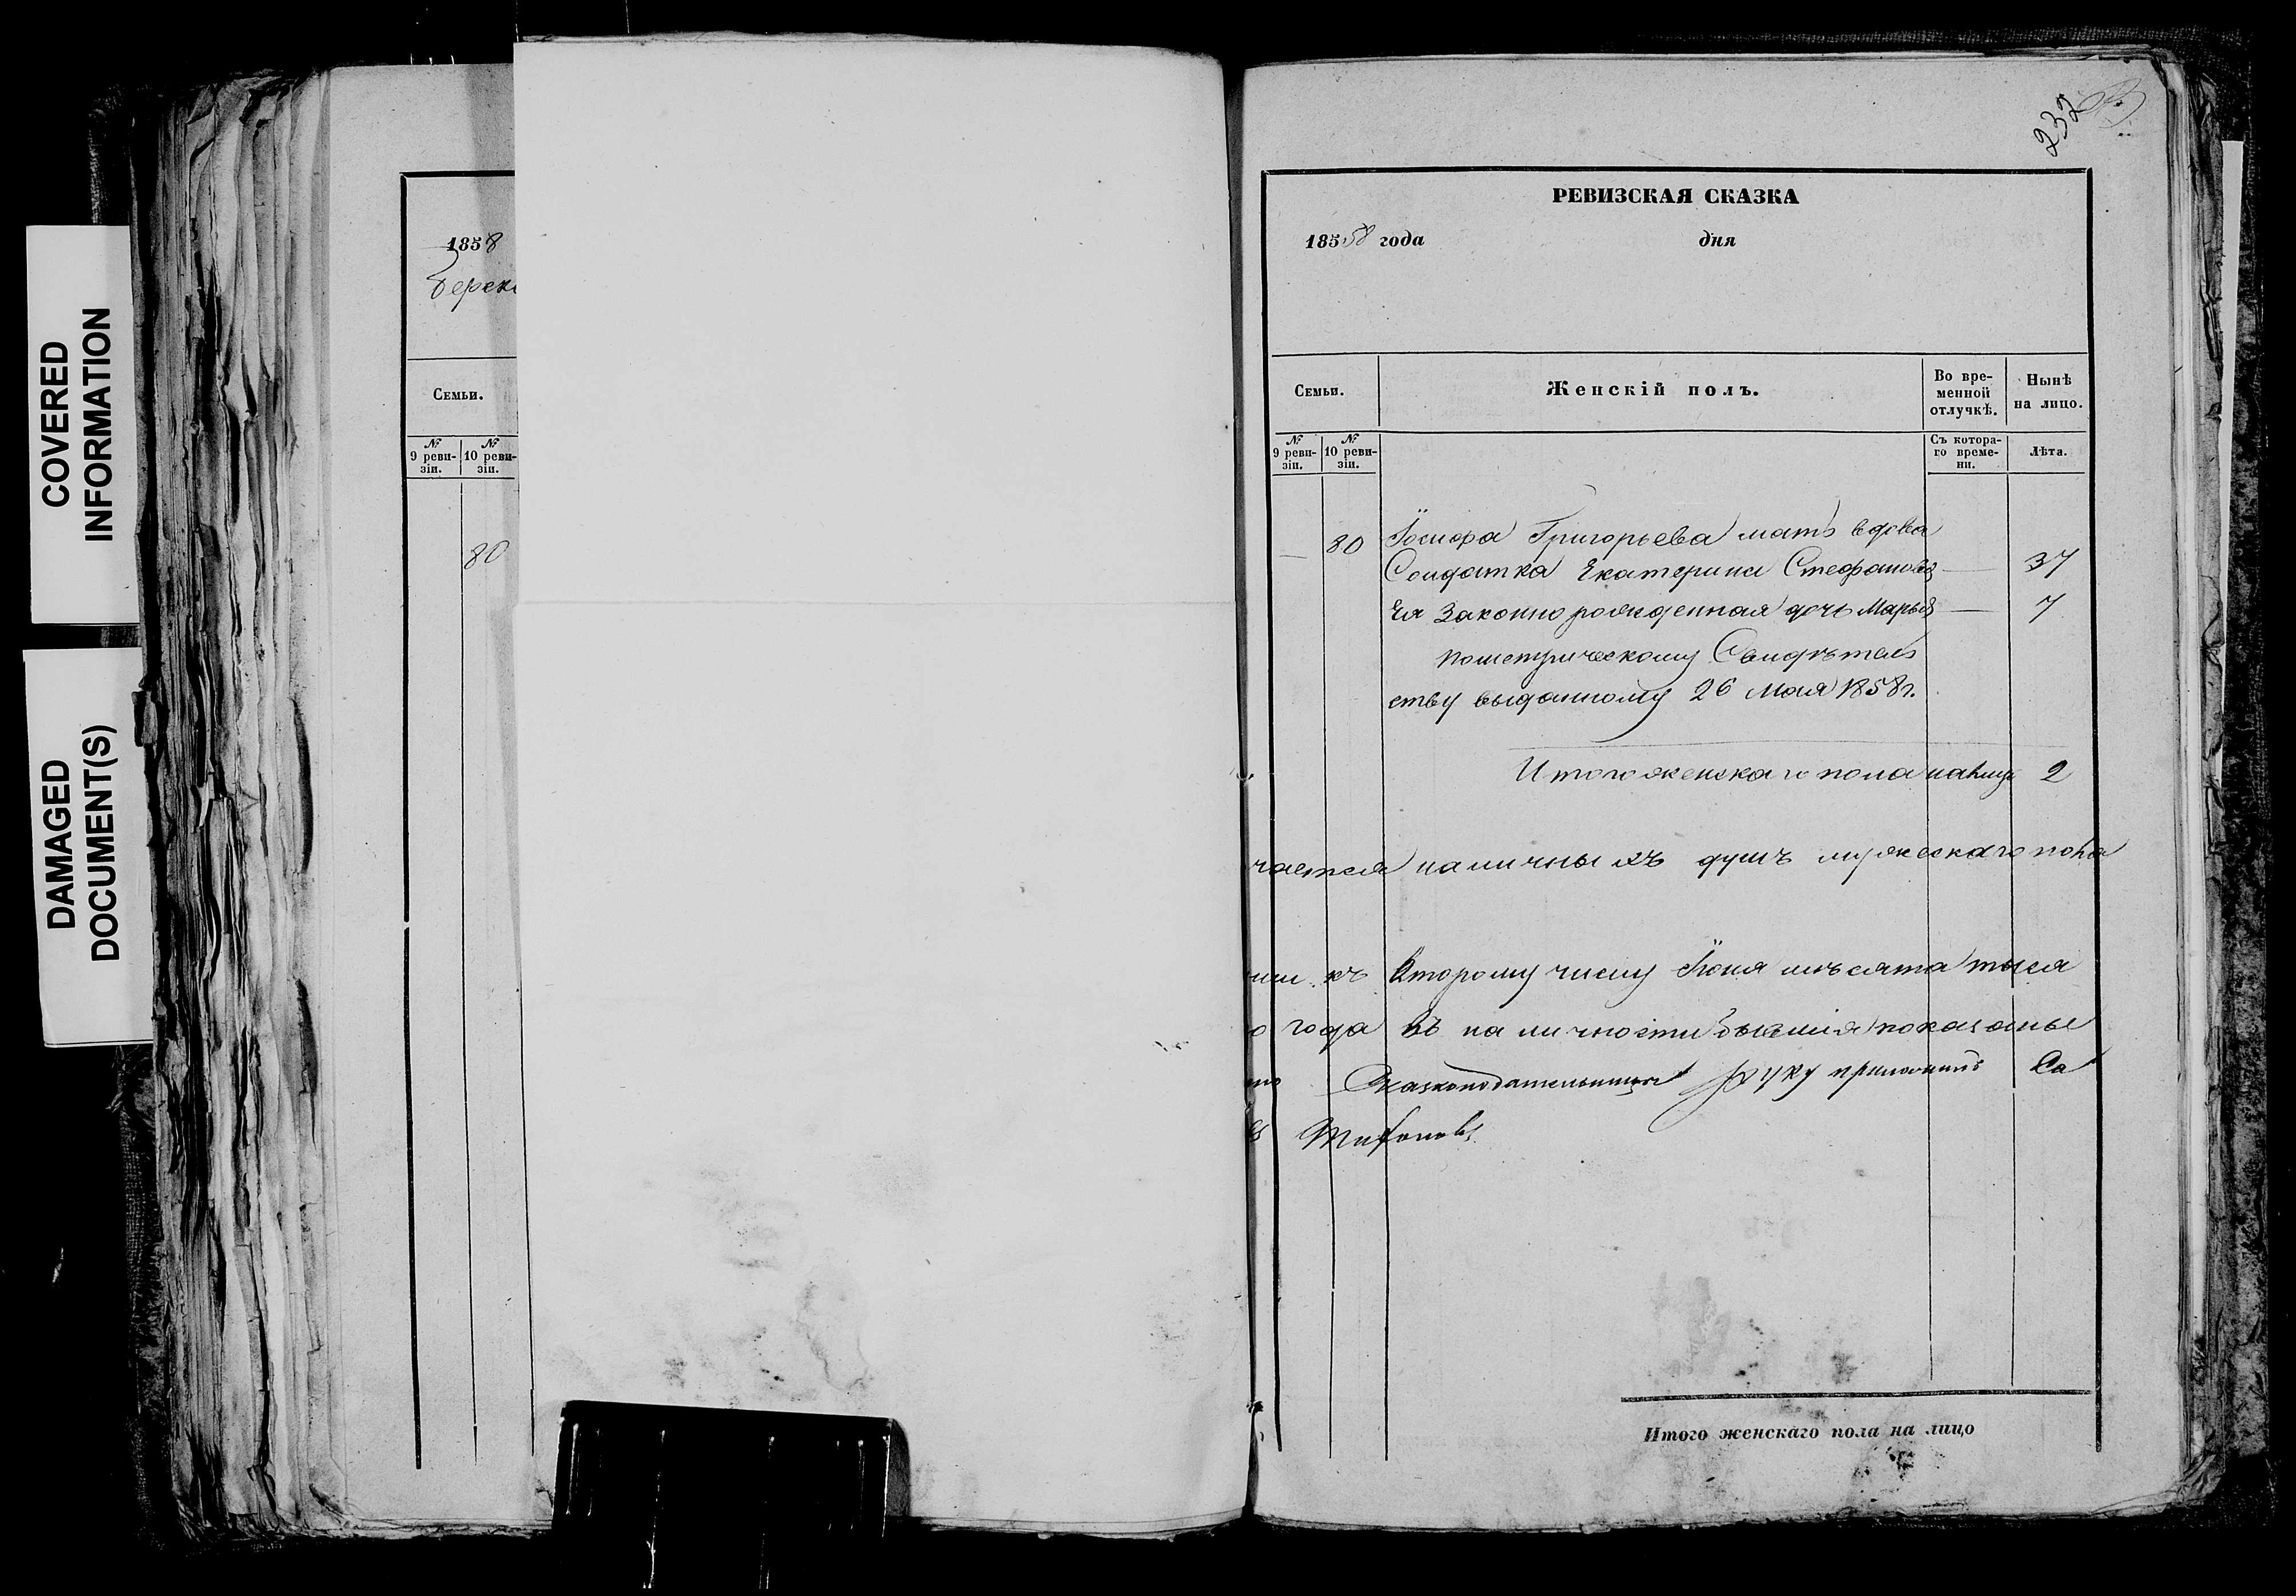 COVERED
INFORMATION
DAMAGED
DOCUMENT(S)
1858
Семьи.
№ 9 реви-зіи.
№ 10 реви-зіи.
80
232
РЕВИЗСКАЯ СКАЗКА
185 58 года дня
Семьи.
Женскій полъ.
Во вре-
менной
отлучкѣ.
Нынѣ
на лицо.
№ 9 реви-зіи.
№ 10 реви-зіи.
Съ котора-
го време-
ни.
Лѣта.
— 80 Іосифа Григорьева мать вдова
Солдатка Екатерина Стефанова — 37
Ея Законно рожденная дочь Марья — 7
пометрическому Свидѣтель
ству выданному 26 Мая 1858 г.
Итого женскаго пола налицо 2
чается наличныхъ душъ мужескаго пола
къ Второму числу Іюня мѣсята тыся
о года въ наличности бывшія показаны
Сказкоподательницы руку приложилъ Са
Тихоновъ
Итого женскаго пола на лицо